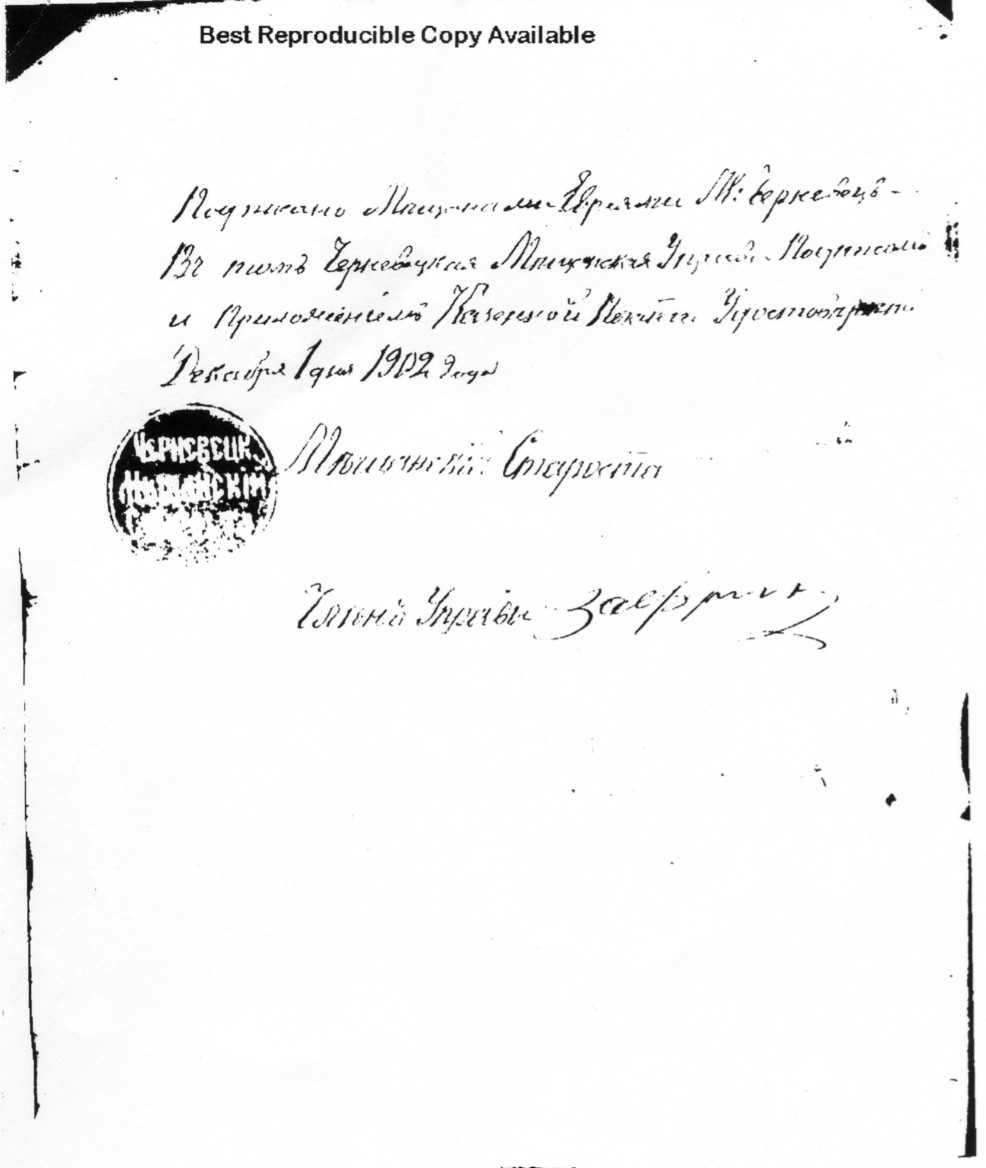 Best Reproducible Copy Available
Подписано Мещанами Евреями М: Черневецъ
Въ томъ Черневецкая Мещанская Управа Подписомъ
и Приложениемъ Казенной Печати Удостоверяетъ
Декабря 1 дня 1902 года
ЧЕРНЕВЕЦК.
МѢЩАНСКІЙ
Мѣщанскій Староста
Управы